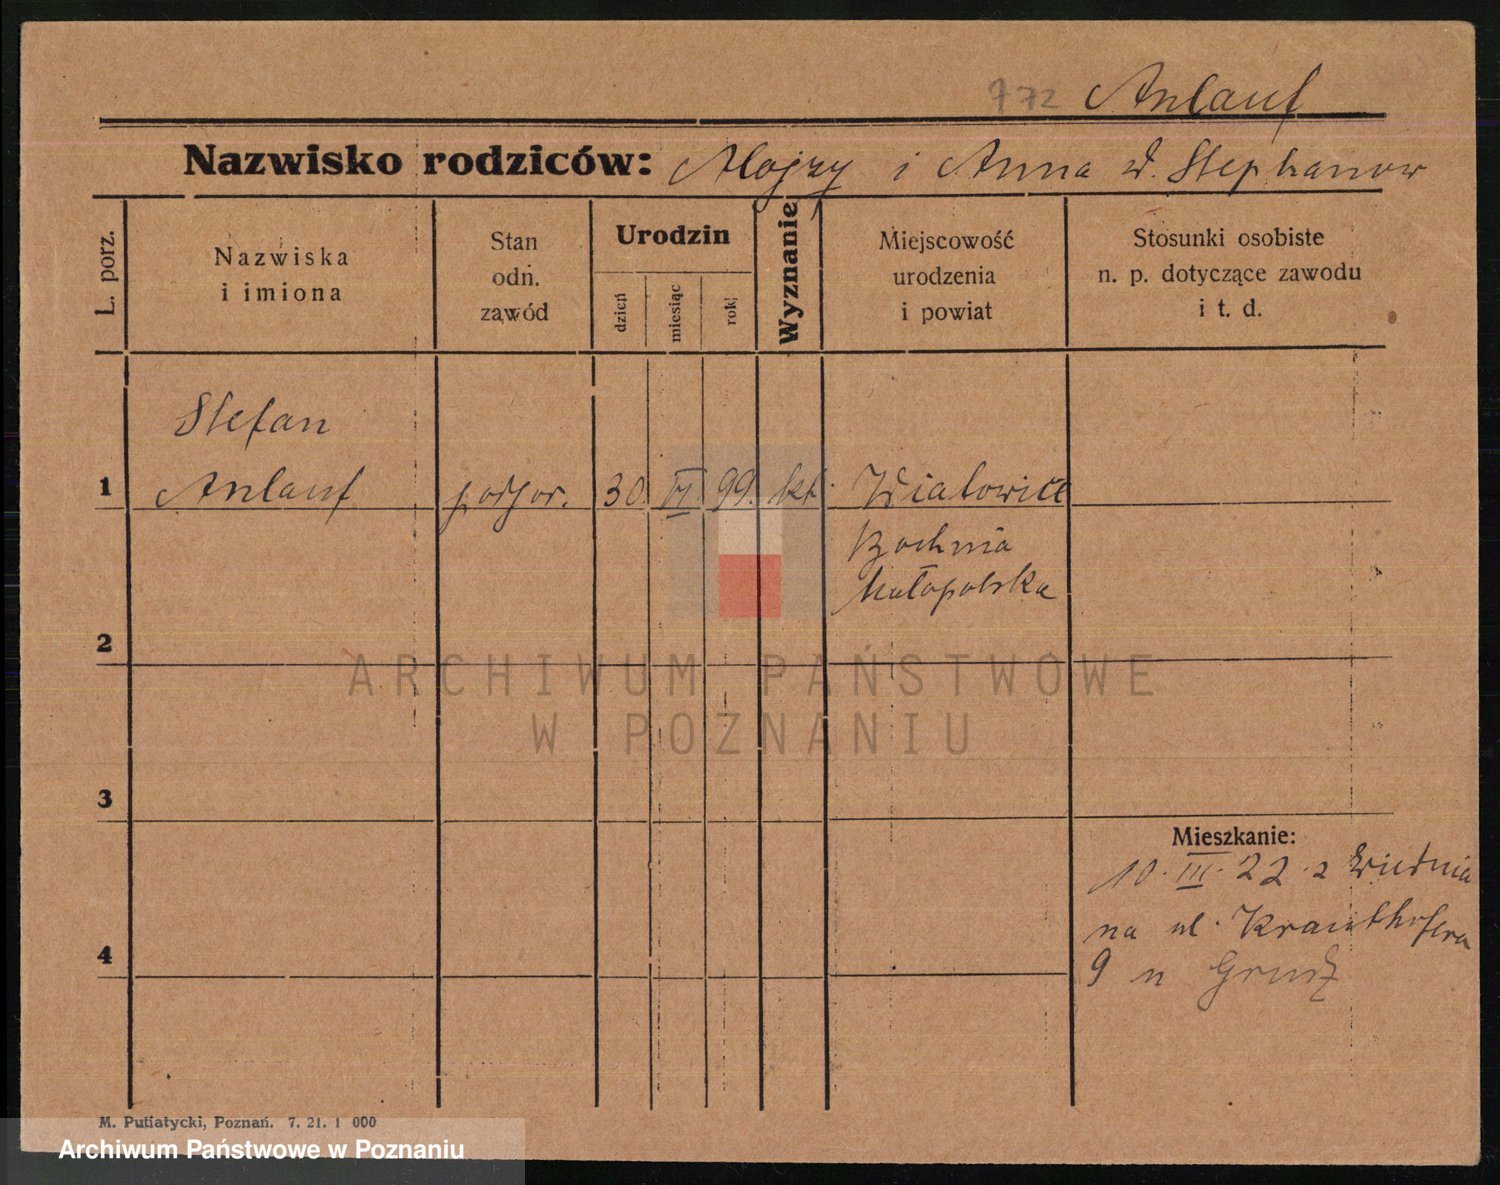 772 Anlauf
Nazwisko rodziców: Alojzy i Anna d. Stephanow
L. porz.
Nazwiska
i imiona
Stan
odn.
zawód
Urodzin
dzień
miesiąc
rok
Wyznanie
Miejscowość
urodzenia
i powiat
Stosunki osobiste
n. p. dotyczące zawodu
i t. d.
Stefan
1 Anlauf podpor. 30. 99. kt.
Bochnia
Małopolska
2
ARCHIWUM PAŃSTWOWE
W POZNANIU
3
Mieszkanie:
10. III. 22 z Wiednia
na ul. Krauthofera
4
9 u
M. Putiatycki, Poznań. 7. 21. 1 000
Archiwum Państwowe w Poznaniu